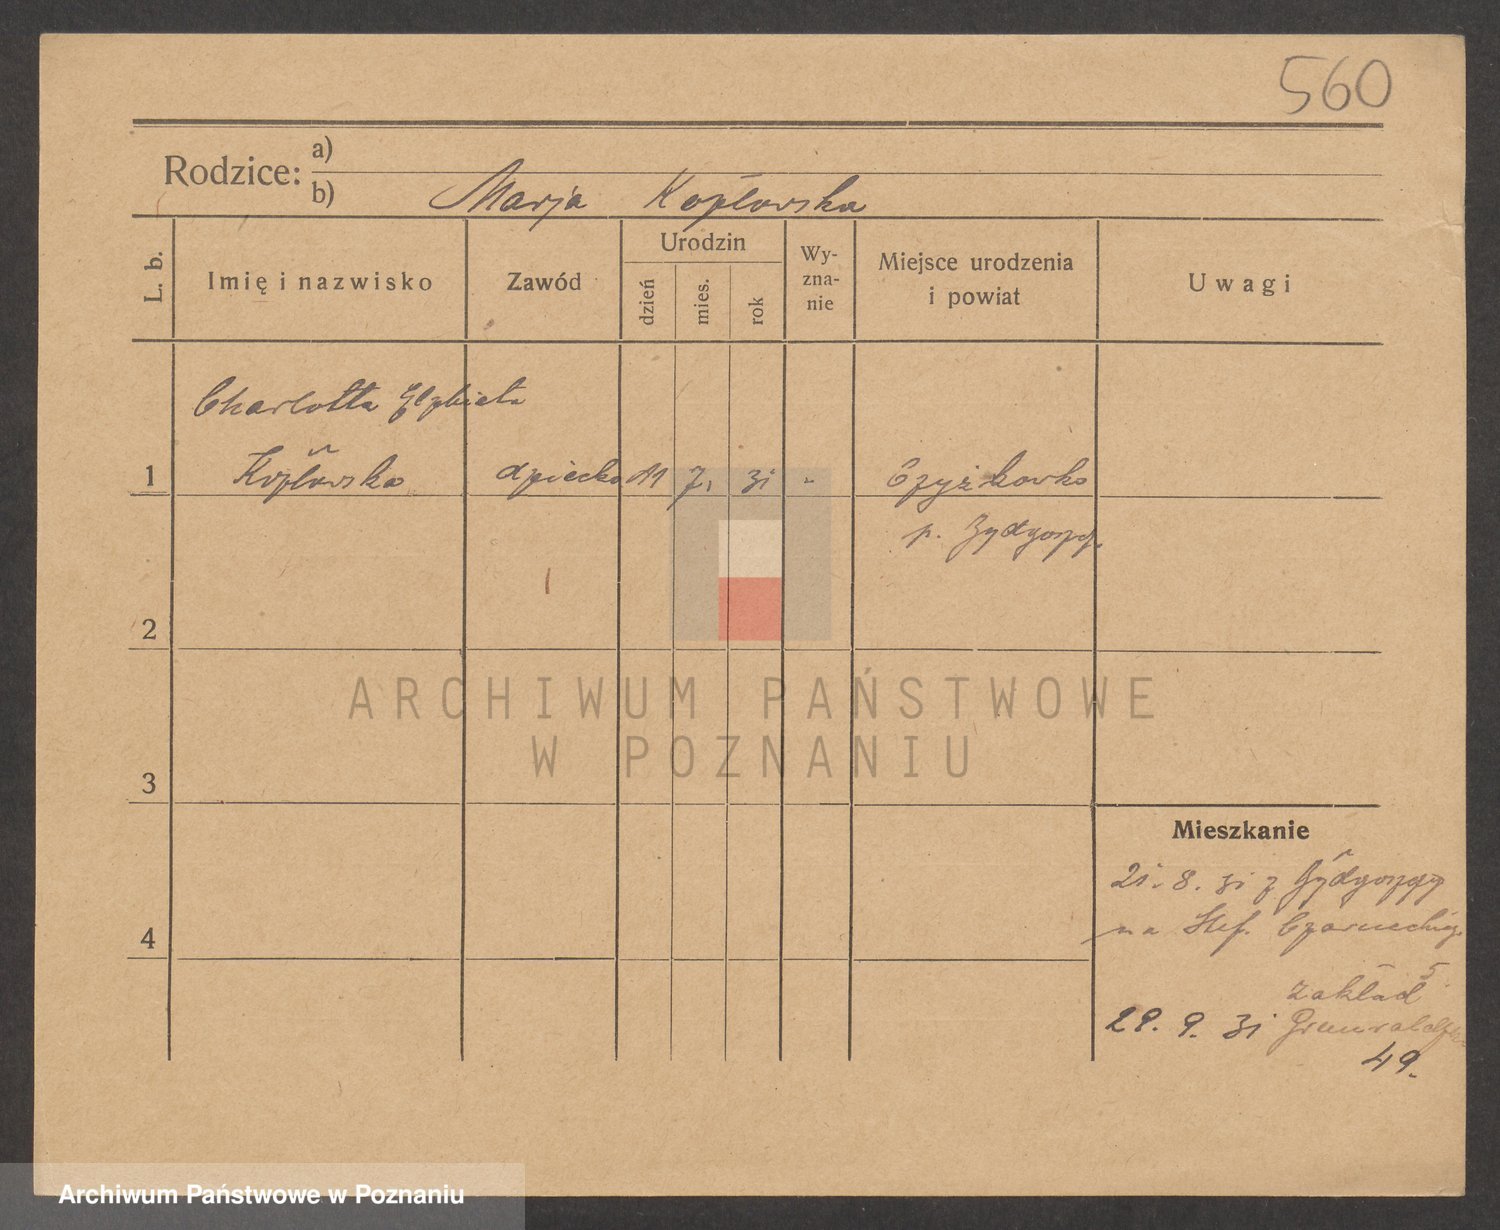 560
Rodzice: a)
b) Marja Kozłowska
L. b.
Imię i nazwisko
Zawód
Urodzin
dzień
mies.
rok
Wy-
zna-
nie
Miejsce urodzenia
i powiat
Uwagi
Charlotta Elzbieta
1 Kozłowska dziecko 7. 31 - Czyżkowko
p. Bydgoszcz.
2
3
4
Mieszkanie
21. 8. 31 z Bydgoszczy
na Stef.
5
zakład
29. 9. 31
49.
ARCHIWUM PAŃSTWOWE
W POZNANIU
Archiwum Państwowe w Poznaniu